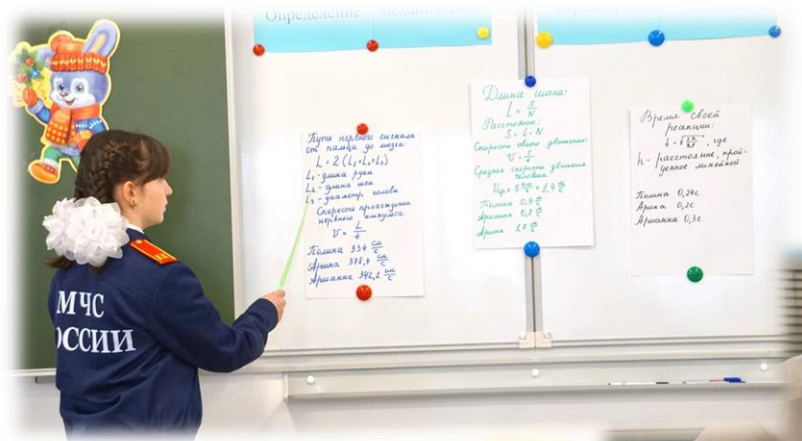 Определение механических
Путь нервного сигнала
от пальца до мозга:
L = 2 (L₁+L₂+L₃)
L₁ - длина руки
L₂ - длина шеи
L₃ - диаметр головы
Скорость прохождения
нервного импульса
V = L/t
Полина 334 см/с
Арина 378,4 см/с
Арианна 342,2 см/с
Длина шага:
L = S/N
Расстояние:
S = L · N
Скорость своего движения:
Средняя скорость движения
человека:
Полина 0,9 м/с
Арианна 0,8 м/с
Арина 1,7 м/с
Время своей
реакции:
, где
h - расстояние, прой-
денное линейкой
Полина 0,24с
Арина 0,2с
Арианна 0,3с
МЧС
ОССИИ